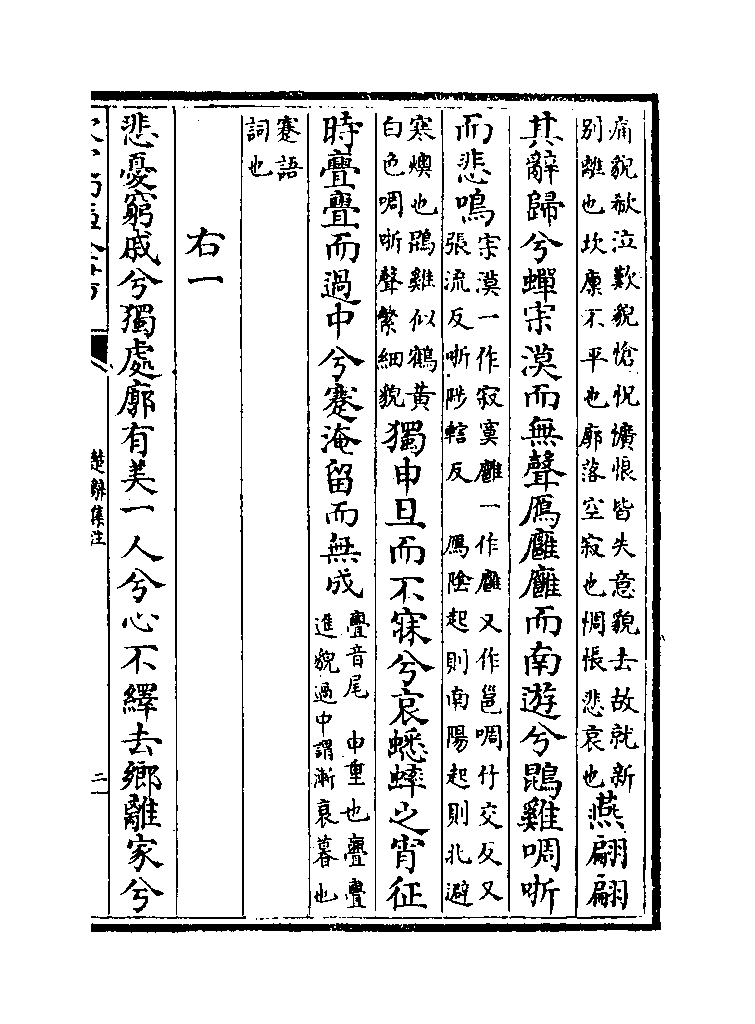 痛貌欷泣歎貌愴怳懭悢皆失意貌去故就新
别離也坎廪不平也廓落空寂也惆悵悲哀也
燕翩翩
其辭歸兮蟬宋漠而無聲鴈廱廱而南遊兮鵾雞啁哳
而悲鳴
宋漠一作寂寞廱一作雝又作邕啁竹交反又
張流反哳陟轄反　鴈陰起則南陽起則北避
寒燠也鵾雞似鶴黄
白色啁哳聲繁細貌
獨申旦而不寐兮哀蟋蟀之宵征
時亹亹而過中兮蹇淹留而無成
亹音尾　申重也亹亹
進貌過中謂漸衰暮也
蹇語
詞也
右一
悲憂窮戚兮獨處廓有美一人兮心不繹去鄉離家兮
楚辭集注
二